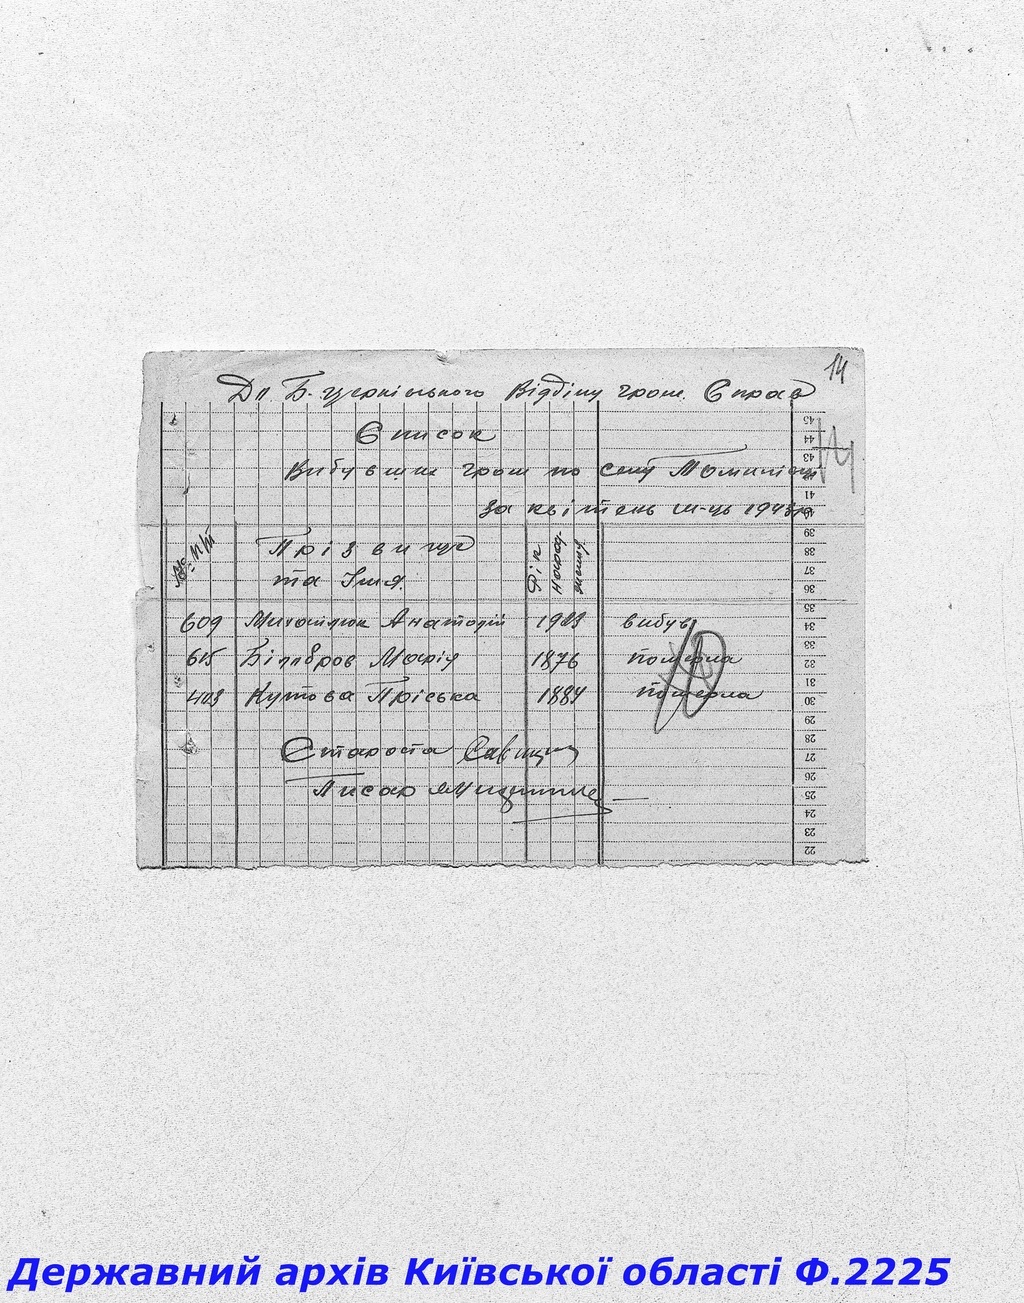 14
До Б. церківського Відділу гром. Справ
Список
Вибувших гром по селу
за квітень м-ць 1943 р
№ п/п
Прізвище
та Імя.
Рік
народ-
ження
609 Анатолій 1923 вибув
615 Білобров Марія 1876 померла
403 Кутова Пріська 1884 померла
Староста
Писар
45
44
43
42
41
40
39
38
37
36
35
34
33
32
31
30
29
28
27
26
25
24
23
22
Державний архів Київської області Ф.2225